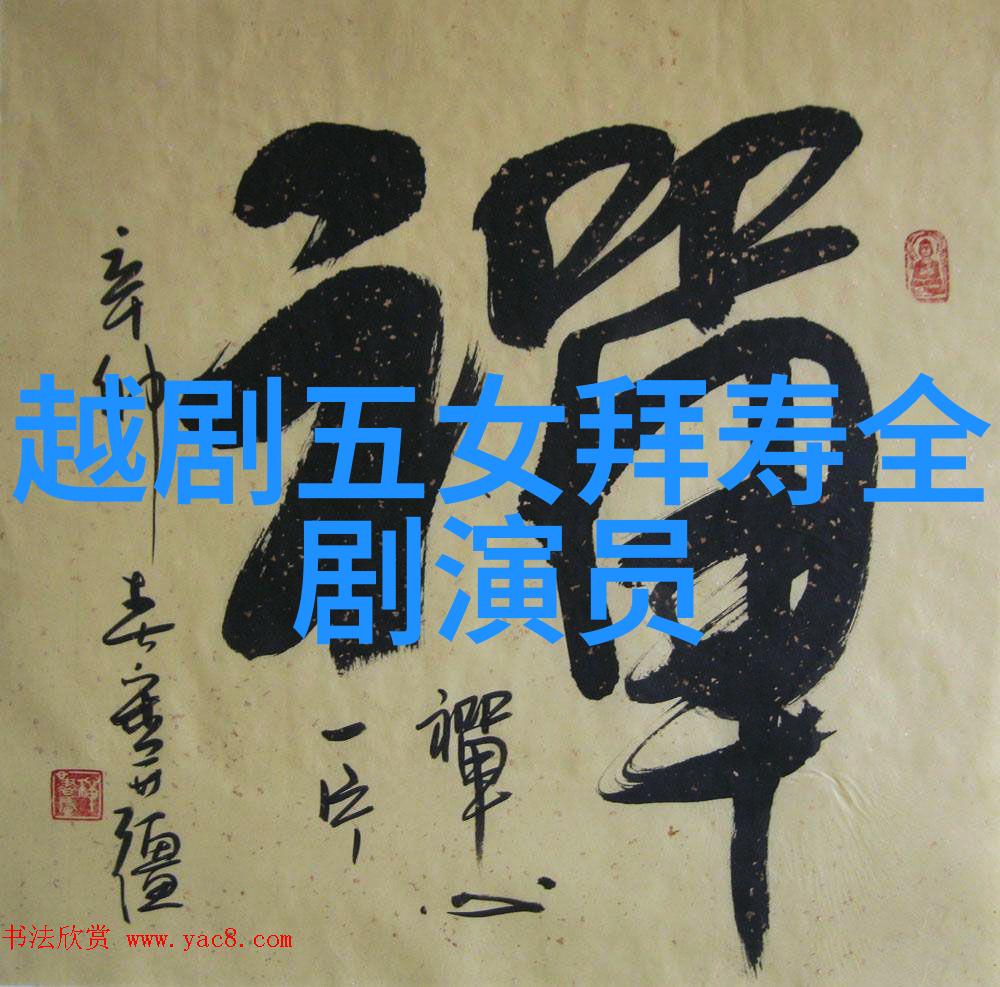 禪
越剧五女拜寿全
剧演员
禪心
一片
书法欣赏 www.yac8.com